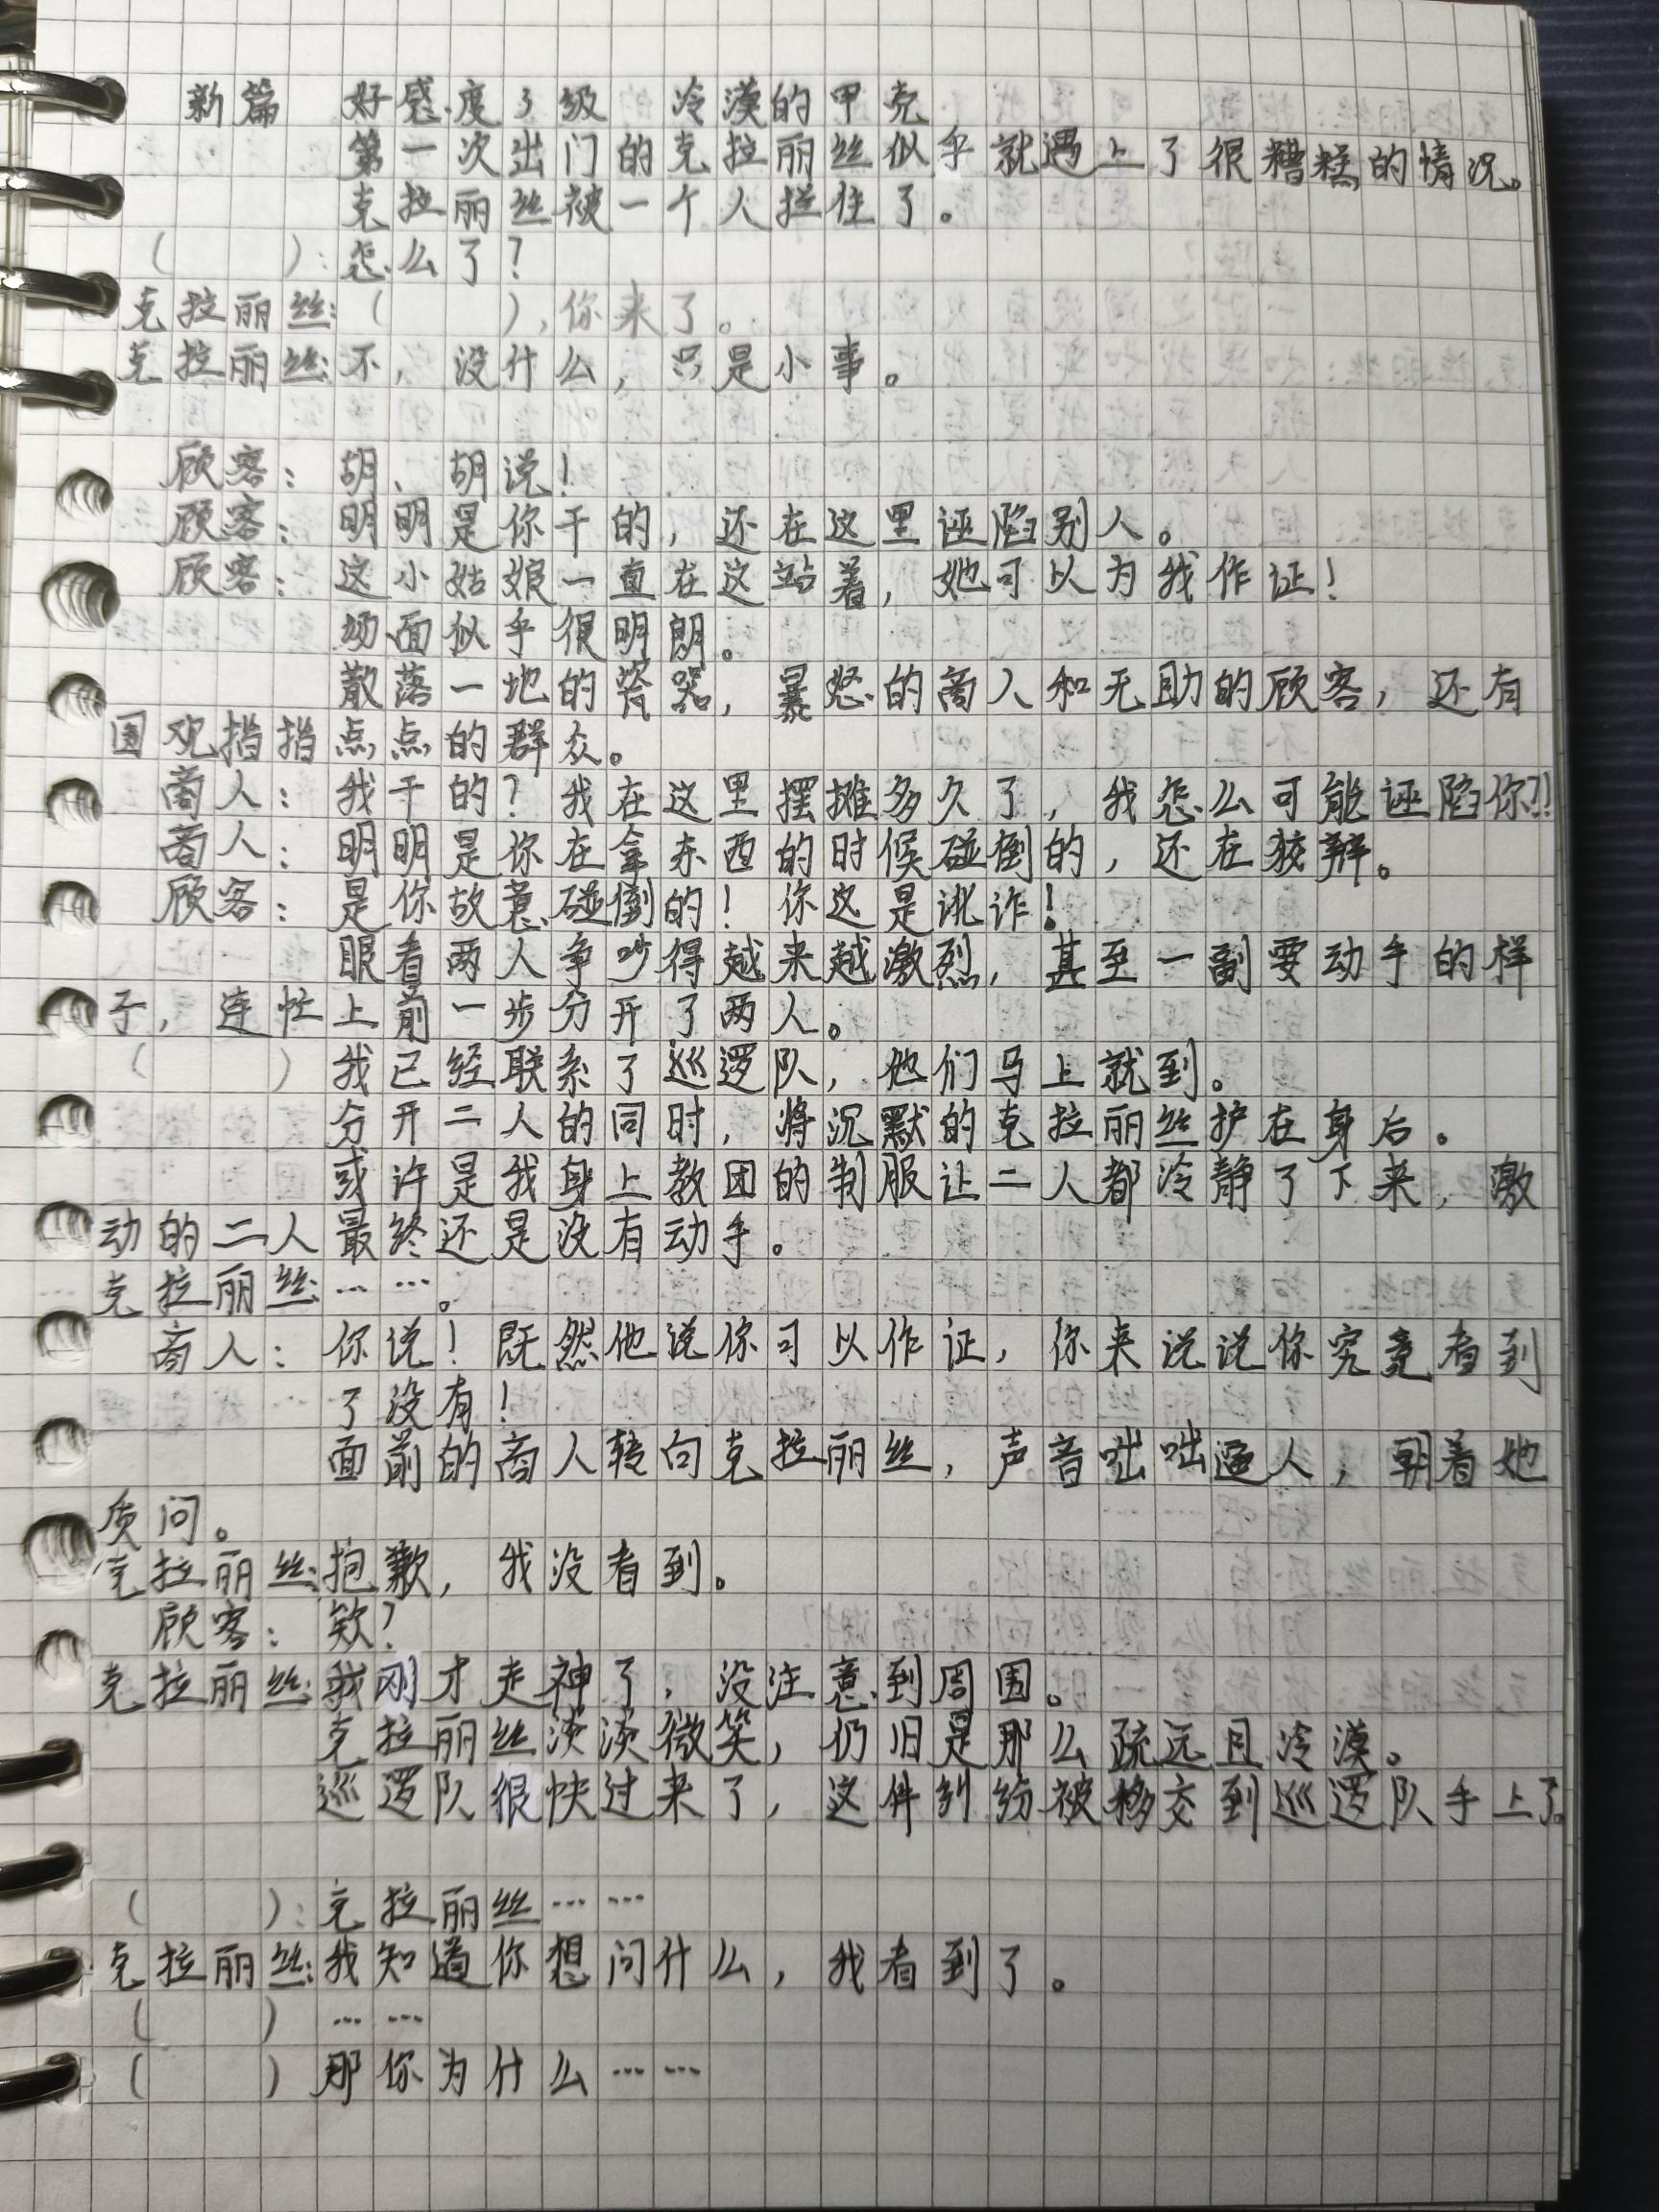 新篇 好感度3级 冷漠的甲克
第一次出门的克拉丽丝似乎就遇上了很糟糕的情况。
克拉丽丝被一个人拦住了。
( ):怎么了?
克拉丽丝:( ),你来了。
克拉丽丝:不,没什么,只是小事。
顾客:胡、胡说!
顾客:明明是你干的,还在这里诬陷别人。
顾客:这小姑娘一直在这站着,她可以为我作证!
场面似乎很明朗。
散落一地的瓷器,暴怒的商人和无助的顾客,还有
围观指指点点的群众。
商人:我干的?我在这里摆摊多久了,我怎么可能诬陷你?!!
商人:明明是你在拿东西的时候碰倒的,还在狡辩。
顾客:是你故意碰倒的!你这是讹诈!
眼看两人争吵得越来越激烈,甚至一副要动手的样
子,连忙上前一步分开了两人。
( )我已经联系了巡逻队,他们马上就到。
分开二人的同时,将沉默的克拉丽丝护在身后。
或许是我身上教团的制服让二人都冷静了下来,激
动的二人最终还是没有动手。
克拉丽丝:……。
商人:你说!既然他说你可以作证,你来说说你究竟看到
了没有!
面前的商人转向克拉丽丝,声音咄咄逼人,朝着她
质问。
克拉丽丝:抱歉,我没看到。
顾客:欸?
克拉丽丝:我刚才走神了,没注意到周围。
克拉丽丝淡淡微笑,仍旧是那么疏远且冷漠。
巡逻队很快过来了,这件纠纷被移交到巡逻队手上了。
( ):克拉丽丝……
克拉丽丝:我知道你想问什么,我看到了。
( )……
( )那你为什么……